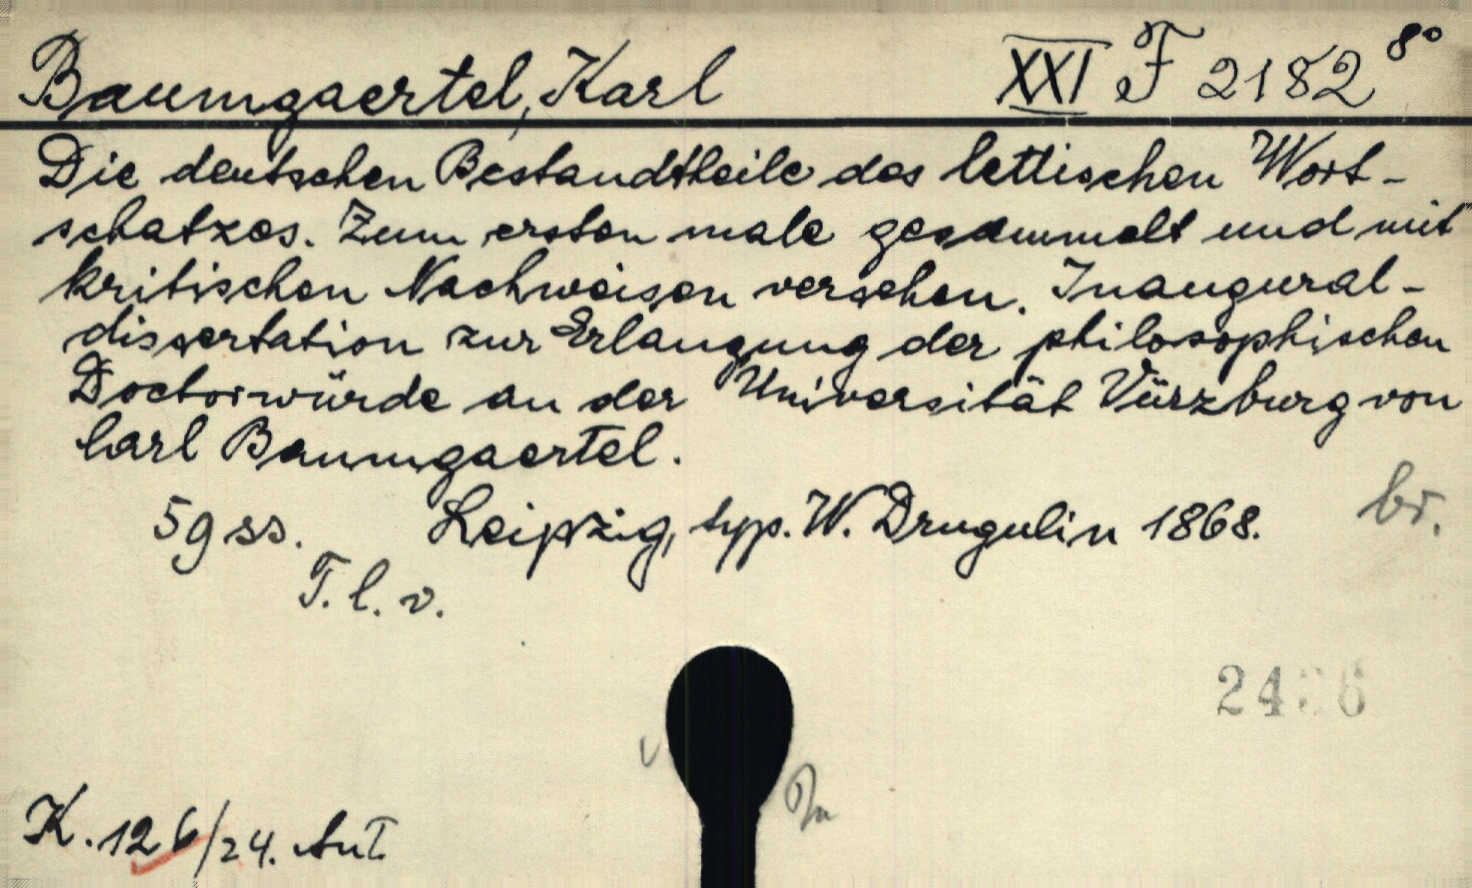 Baumgaertel, Karl XXI F 2182 8°
Die deutschen Bestandtheile des lettischen Wort-
schatzes. Zum ersten male gesammelt und mit
kritischen Nachweisen versehen. Inaugural-
dissertation zur Erlangung der philosophischen
Doctorwürde an der Universität Vürzburg von
Carl Baumgaertel.
59 ss. Leipzig, typ. W. Drugulin 1868. br.
T. l. v.
K. 126/24. AuT